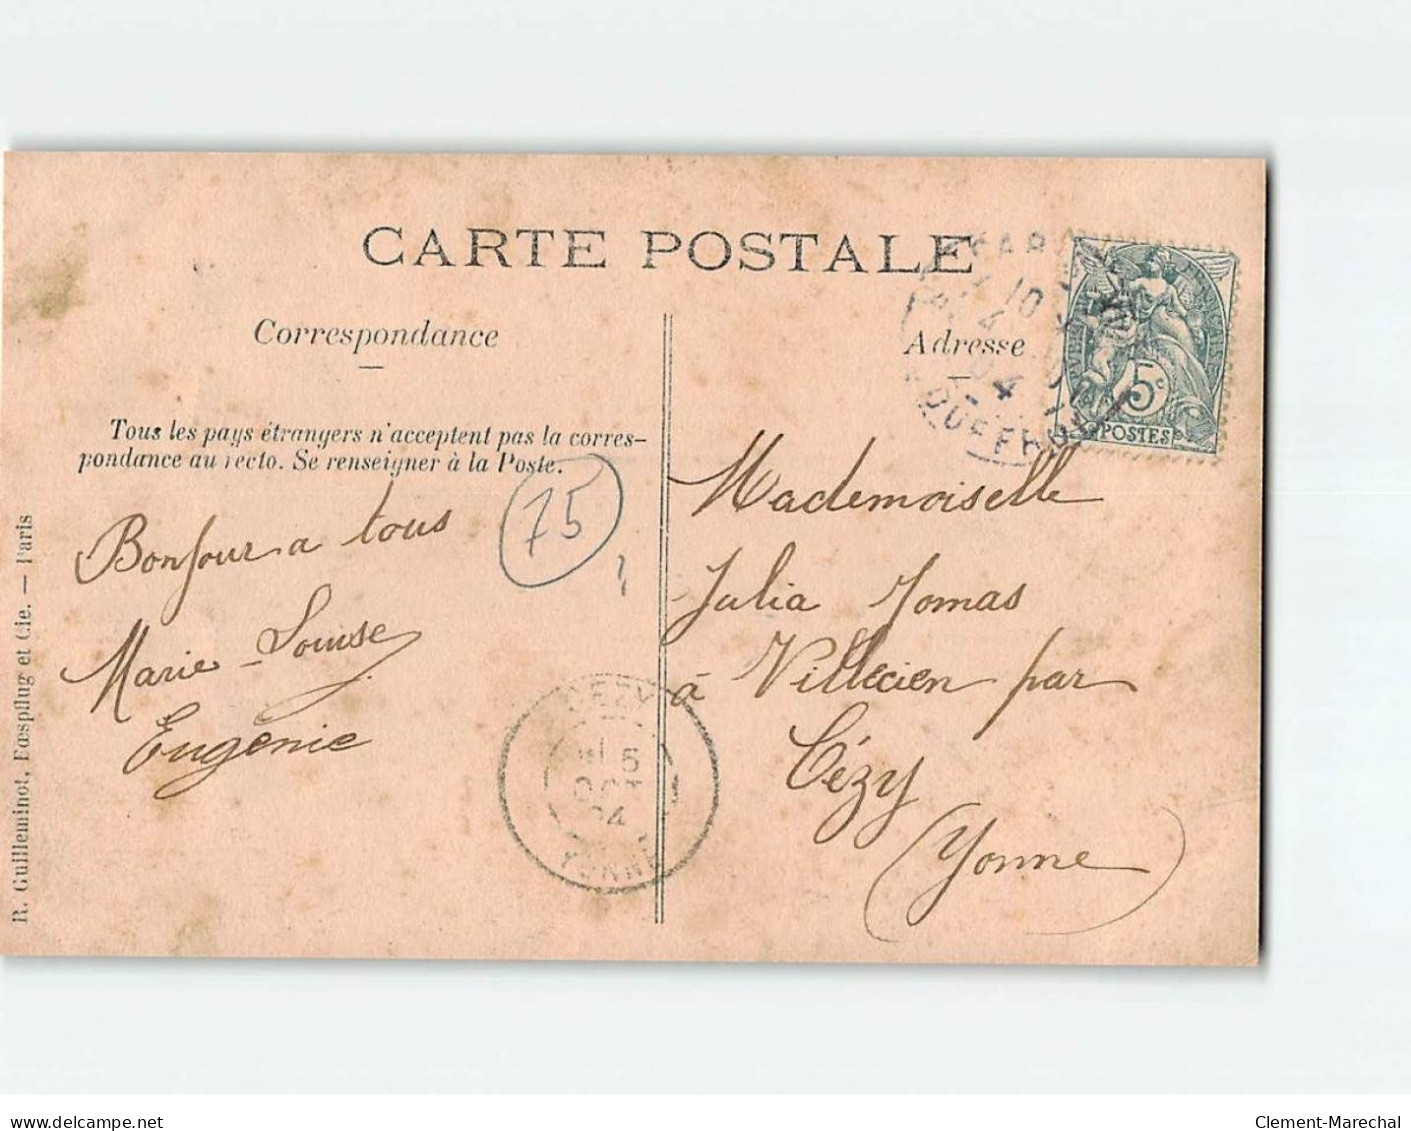 CARTE POSTALE
Correspondance
Tous les pays étrangers n'acceptent pas la corres-
pondance au recto. Se renseigner à la Poste.
75
Bonjour a tous
Marie-Louise
Eugénie
R. Guilleminot, Fœspflug et Cie. — Paris
CÉZY
6
OCT
04
YONNE
Adresse
10
04
5c
POSTES
Mademoiselle
Julia Jomas
à Villecien par
Cézy
(Yonne)
delcampe.net
Clement-Marechal